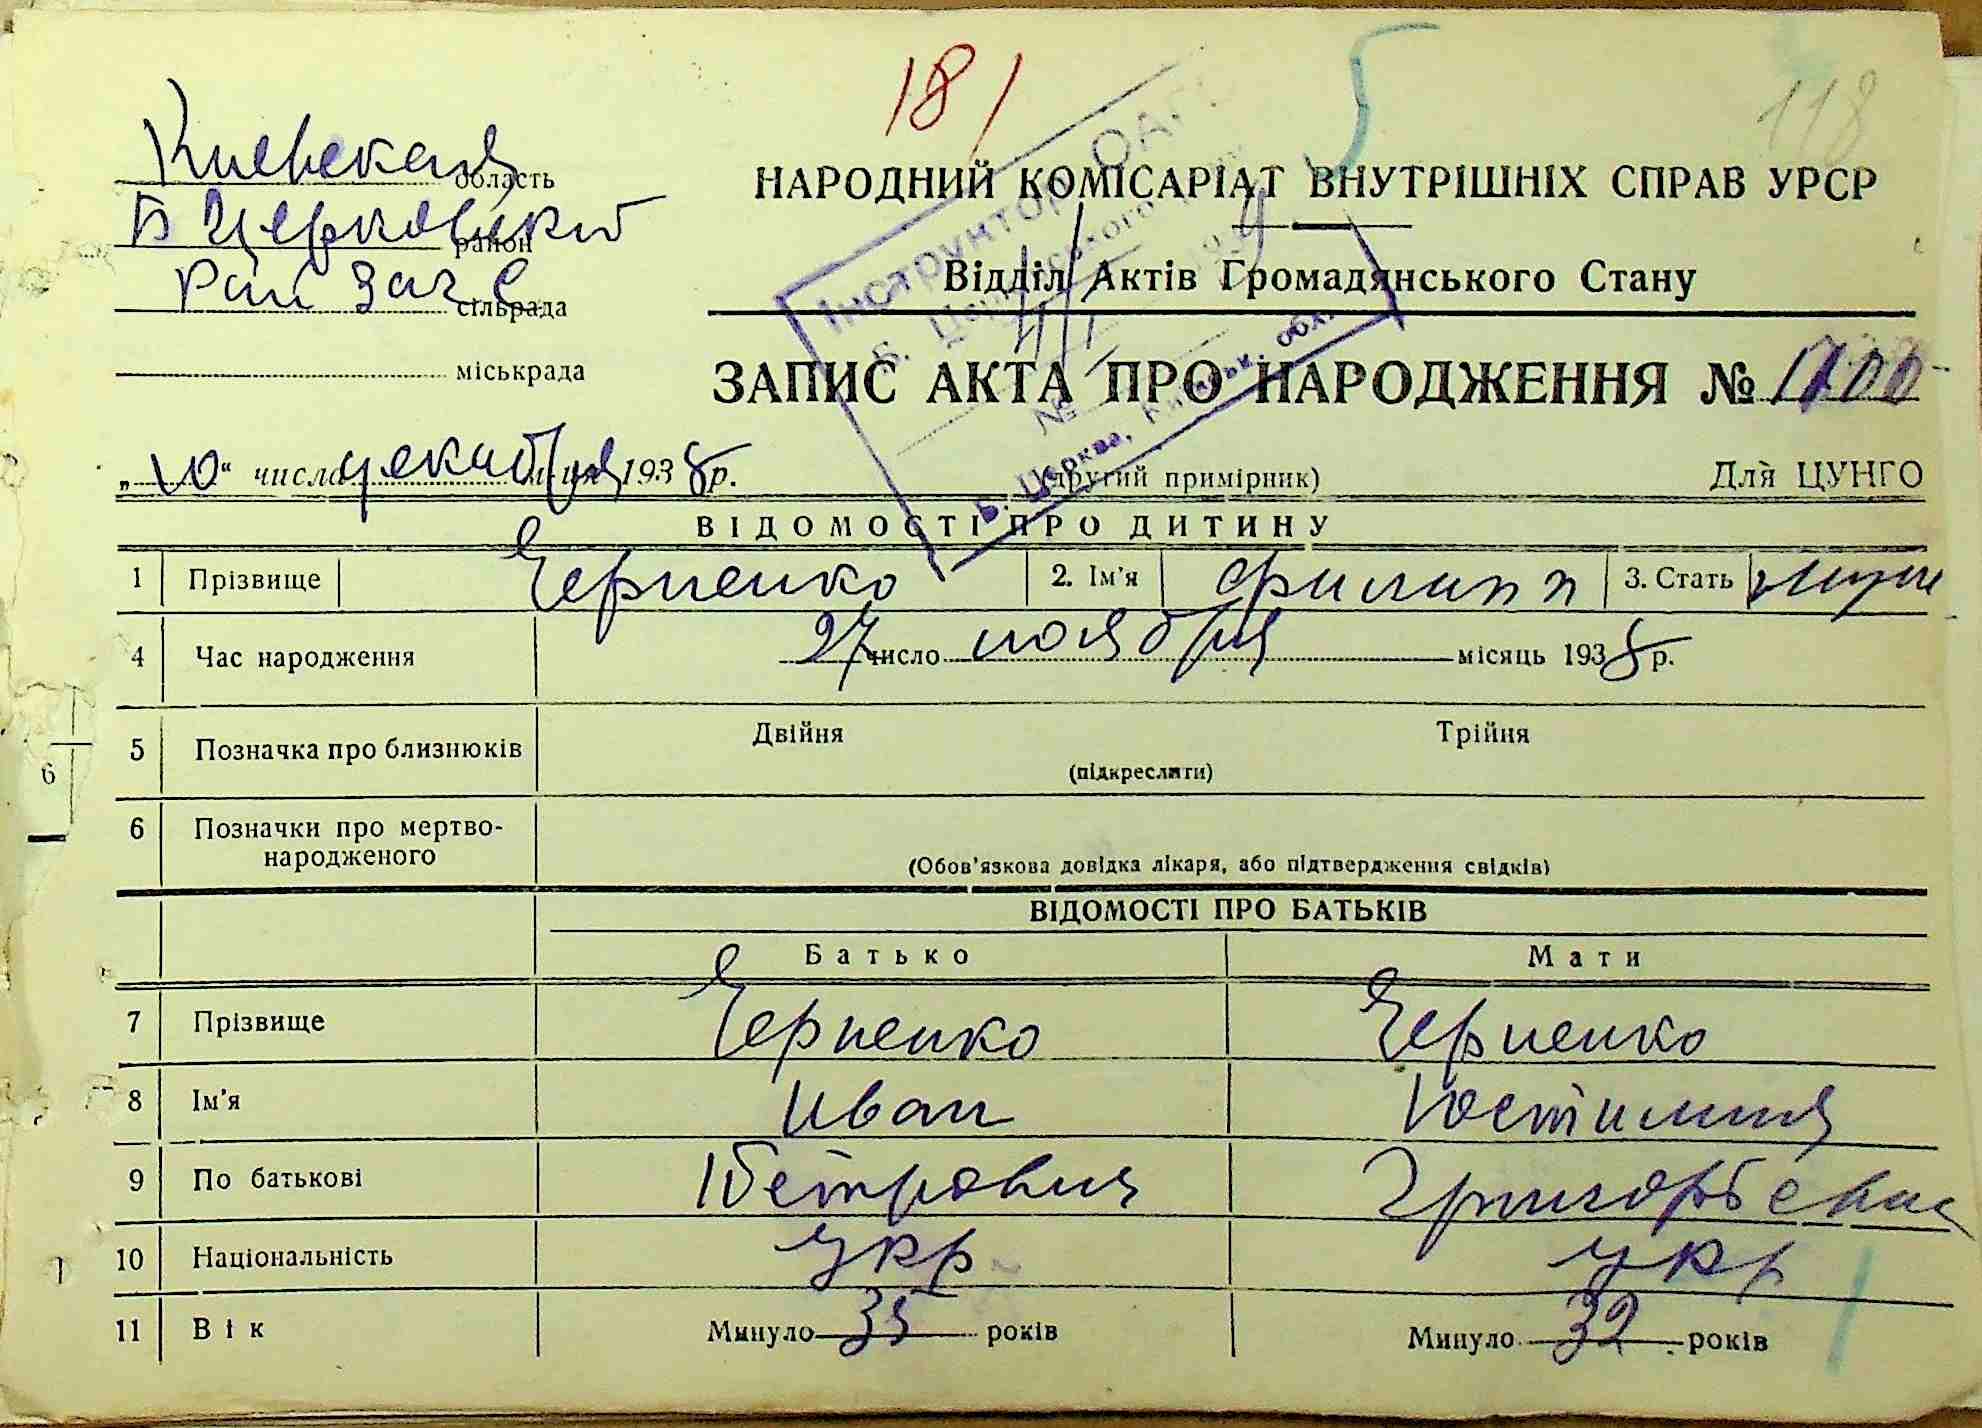 181
5
118
Киевская область
Б Церковский район
Рай Загс сільрада
міськрада
НАРОДНИЙ КОМІСАРІАТ ВНУТРІШНІХ СПРАВ УРСР
Відділ Актів Громадянського Стану
ЗАПИС АКТА ПРО НАРОДЖЕННЯ №
Інструктор ОАГС
Б. Церква, Київськ. обл.
„10“ числа декабря 1938 р.
(другий примірник)
Для ЦУНГО
ВІДОМОСТІ ПРО ДИТИНУ
1 Прізвище Черненко 2. Ім'я Филипп 3. Стать муж
4 Час народження 27 число ноября місяць 1938 р.
5 Позначка про близнюків Двійня Трійня
(підкреслити)
6 Позначки про мертво-
народженого
(Обов'язкова довідка лікаря, або підтвердження свідків)
ВІДОМОСТІ ПРО БАТЬКІВ
Батько Мати
7 Прізвище Черненко Черненко
8 Ім'я Иван Юстиния
9 По батькові Петрович Григорьевна
10 Національність укр укр
11 Вік Минуло 35 років Минуло 32 років
6